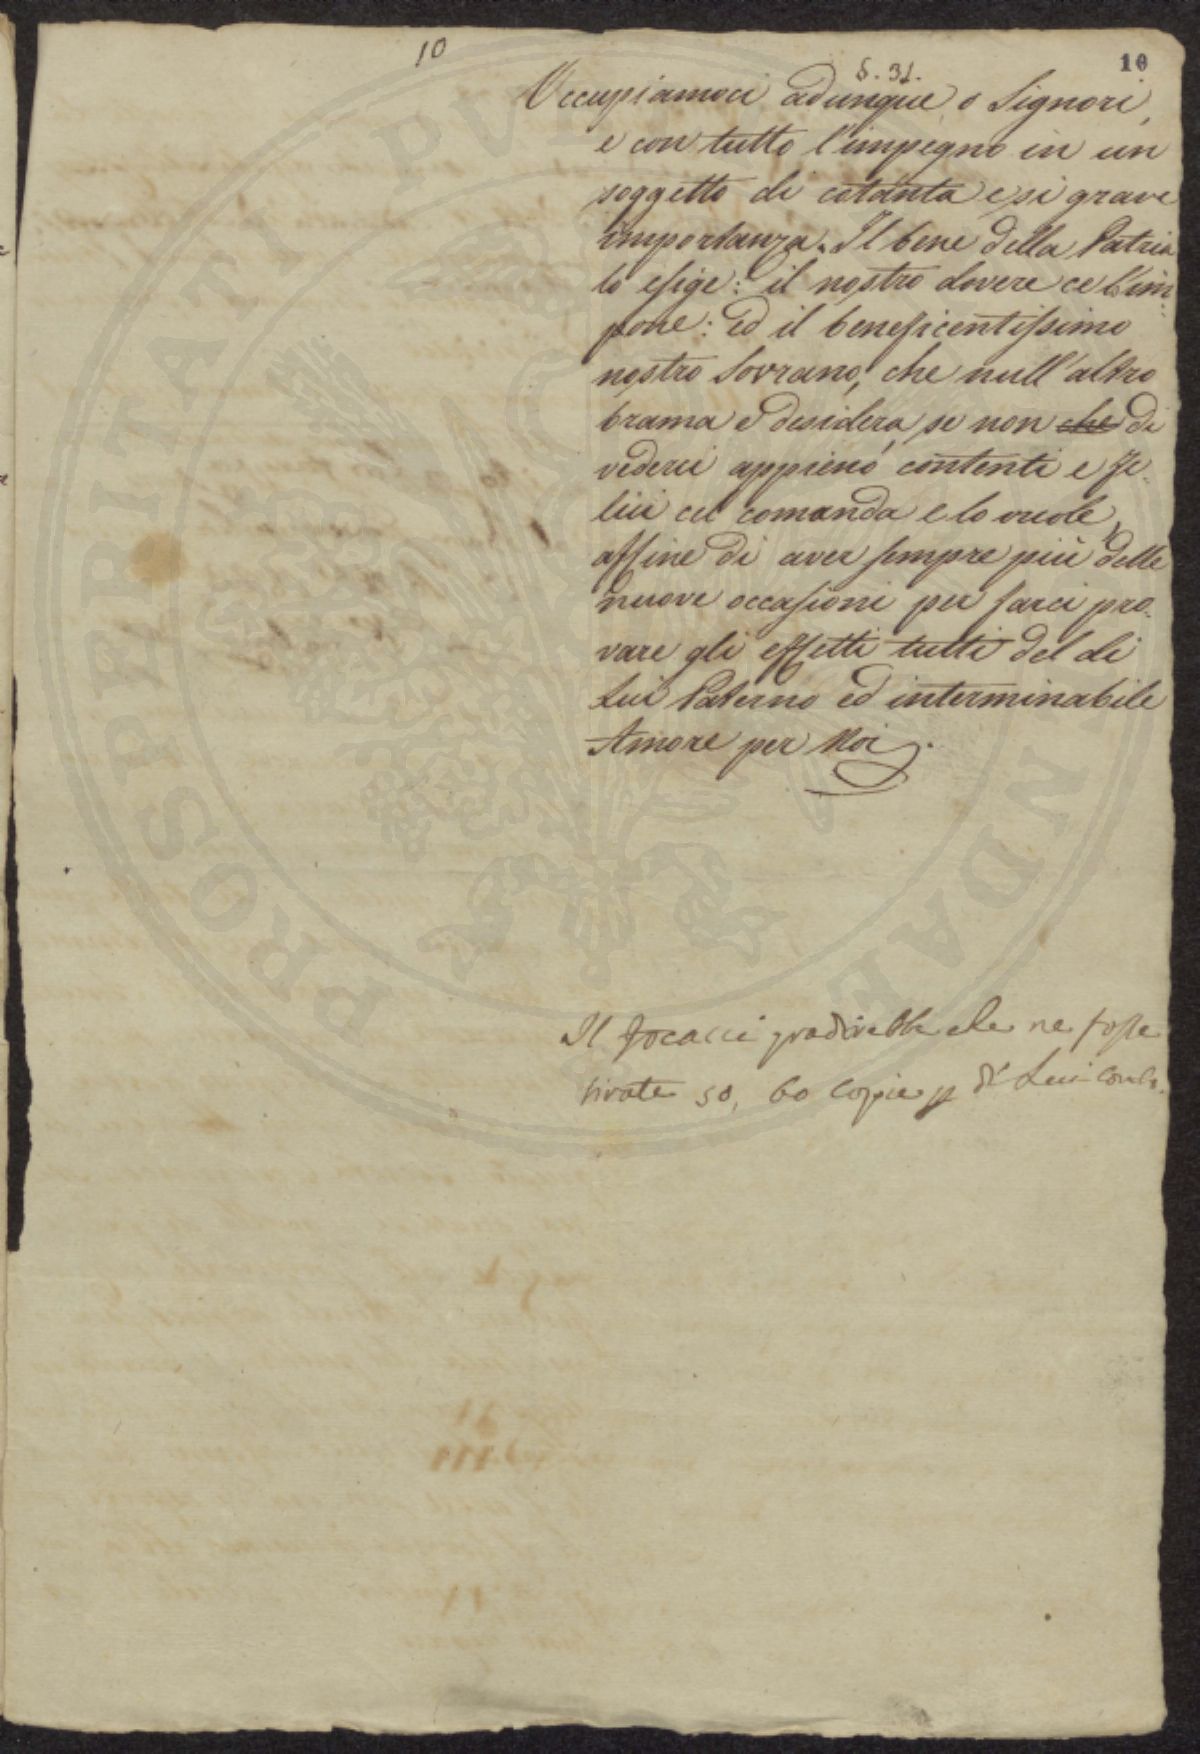 10
10
§. 31.
Occupiamoci adunque, o Signori,
e con tutto l'impegno in un
soggetto di cotanta e sì grave
importanza. Il bene della Patria
lo esige: il nostro dovere ce l'im-
pone: ed il beneficentissimo
nostro Sovrano, che null'altro
brama e desidera, se non che di
vederci appieno contenti e fe-
lici cel comanda e lo vuole,
affine di aver sempre più delle
nuove occasioni per farci pro-
vare gli effetti tutti del di
Lui Paterno ed interminabile
Amore per Noi.
Il Focacci gradirebbe che ne fosse
tirate 50, 60 copie p di Lui conto.
PROSPERITATI PVBLICAE AVGENDAE